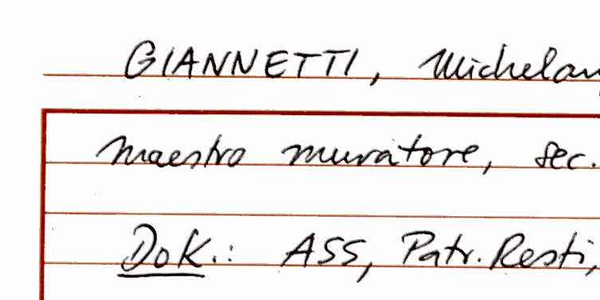 GIANNETTI, Michelan
maestro muratore, sec.
Dok.: ASS, Patr. Resti,